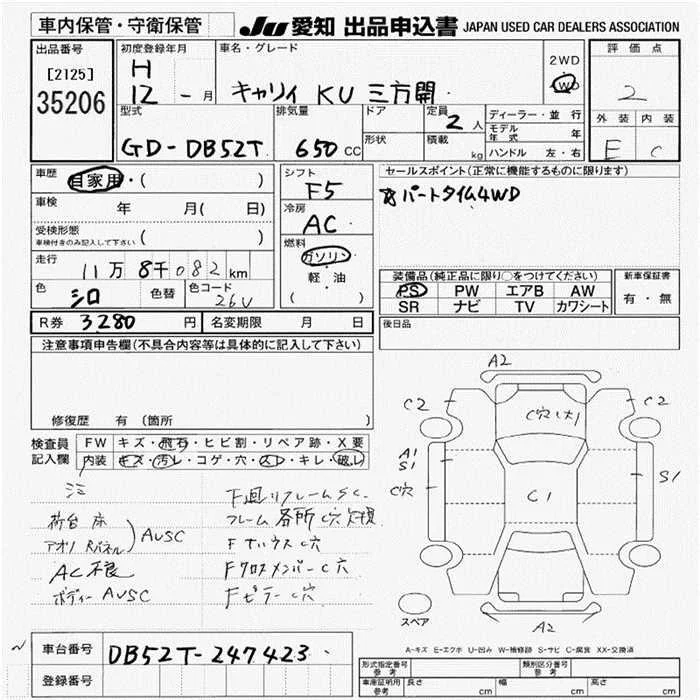 車内保管・守衛保管
JU 愛知 出品申込書 JAPAN USED CAR DEALERS ASSOCIATION
出品番号
[2125]
35206
初度登録年月
H
12 - 月
車名・グレード
キャリィ KU 三方開
2WD
4WD
評価点
2
外装 内装
E C
型式
GD-DB52T
排気量
650 CC
ドア
形状
定員
2 人
積載
kg
ディーラー・並行
モデル年式 年
ハンドル 左・右
車歴
自家用・( )
車検 年 月( 日)
受検形態
車検付きのみ記入して下さい ( )
走行
11万 8千082 km
色
シロ
色替
色コード
26U
シフト
F5
冷房
AC
燃料
ガソリン
軽・油
( )
セールスポイント(正常に機能するものに限ります)
☆パートタイム4WD
装備品(純正品に限り○をつけてください)
PS PW エアB AW
SR ナビ TV カワシート
新車保証書
有・無
R券 3280 円 名変期限 月 日
後日品
注意事項申告欄(不具合内容等は具体的に記入して下さい)
修復歴 有 (箇所 )
検査員記入欄
FW キズ・飛石・ヒビ割・リペア跡・X要
内装 キズ・汚レ・コゲ・穴・スレ・キレ・破レ
荷台 床
アオリ Rパネル AUSC
AC不良
ボディー AUSC
下廻リフレームSC
フレーム各所C穴
FホウスC穴
FクロスメンバーC穴
FピラーC穴
A2
C2
C穴(大)
C2
A1
S1
C穴
C1
S1
A2
スペア
A-キズ E-エクボ U-凹み W-補修跡 S-サビ C-腐食 XX-交換済
車台番号 DB52T-247423
登録番号
形式指定番号 参考
類別区分番号 参考
車庫証明用 参考
長さ cm 幅 cm 高さ cm